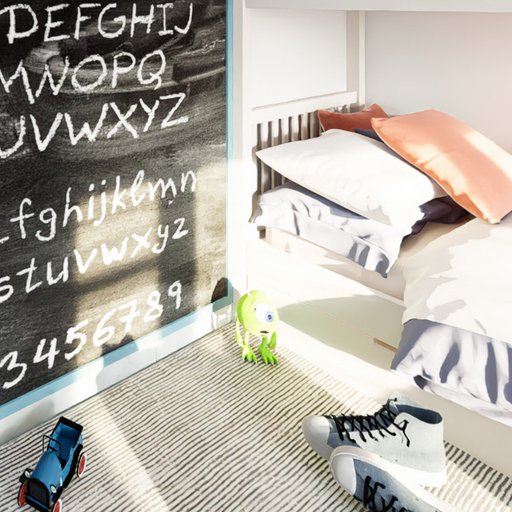 DEFGHIJ
MNOPQ
UVWXYZ
fghijklmn
stuvwxyz
3456789